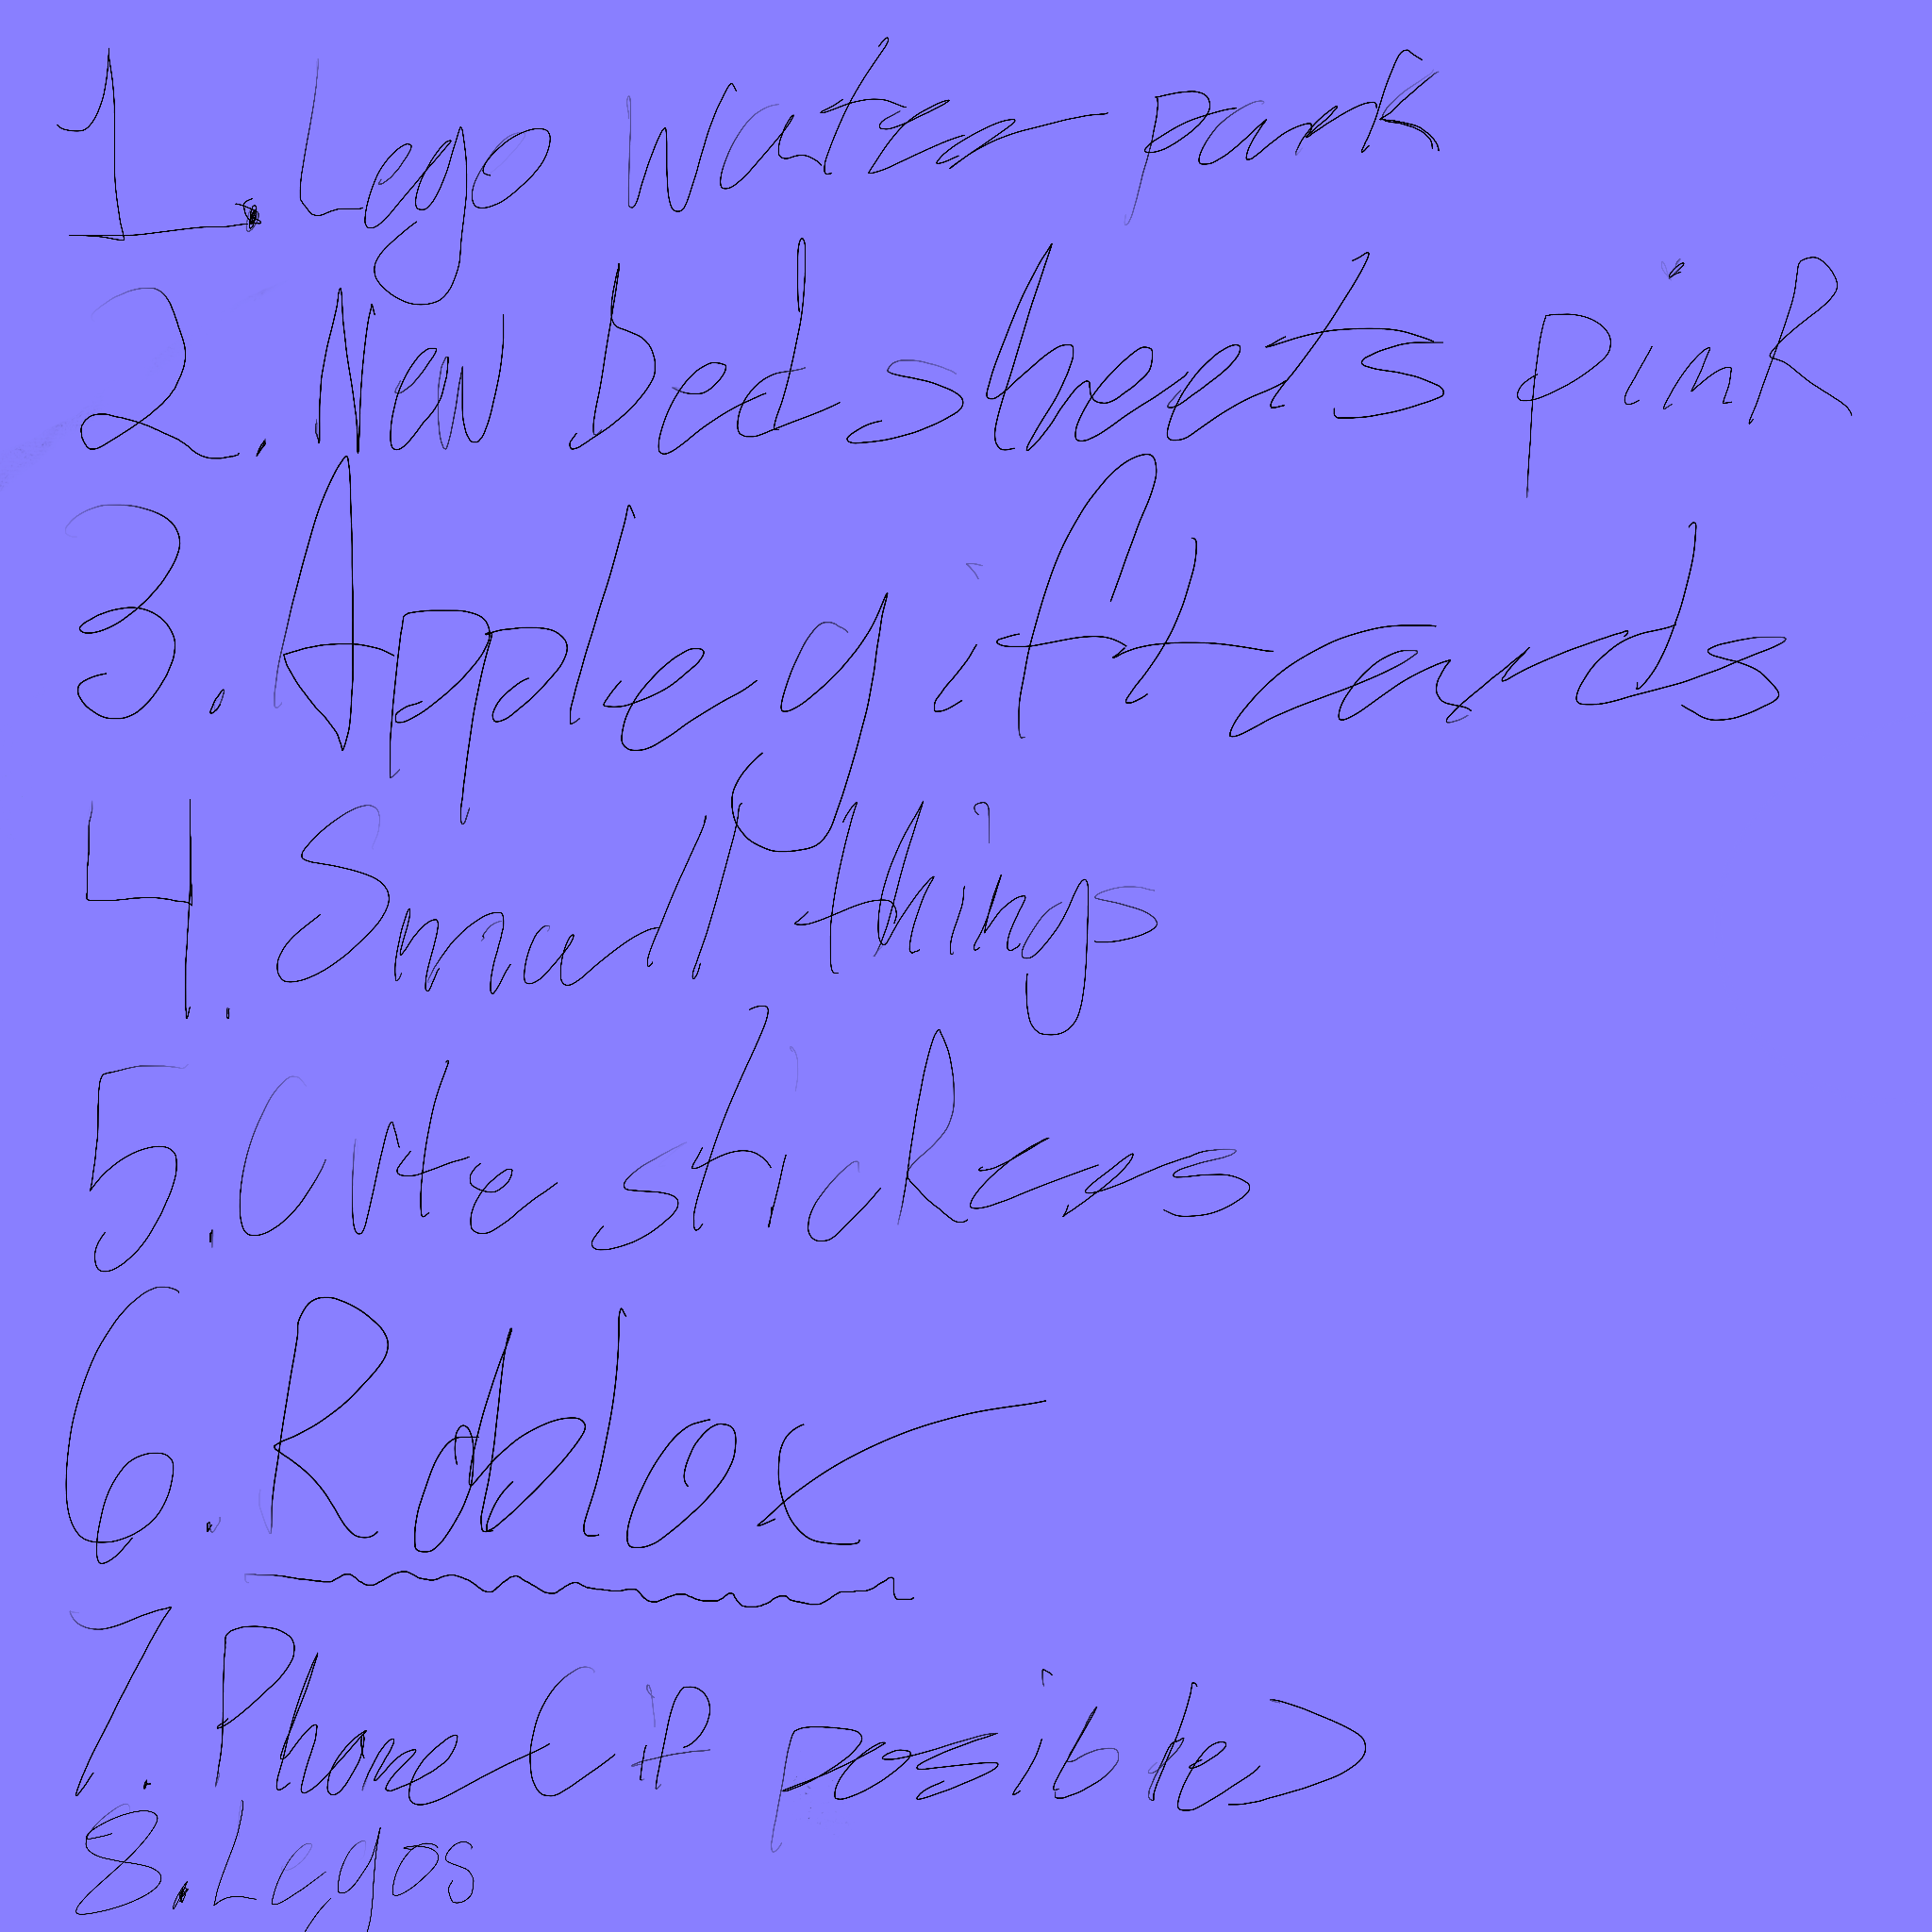 1. Lego water park
2. New bed sheets pink
3. Apple gift cards
4. Small things
5. Cute stickers
6. Roblox
7. Phone (if posible)
8. Legos